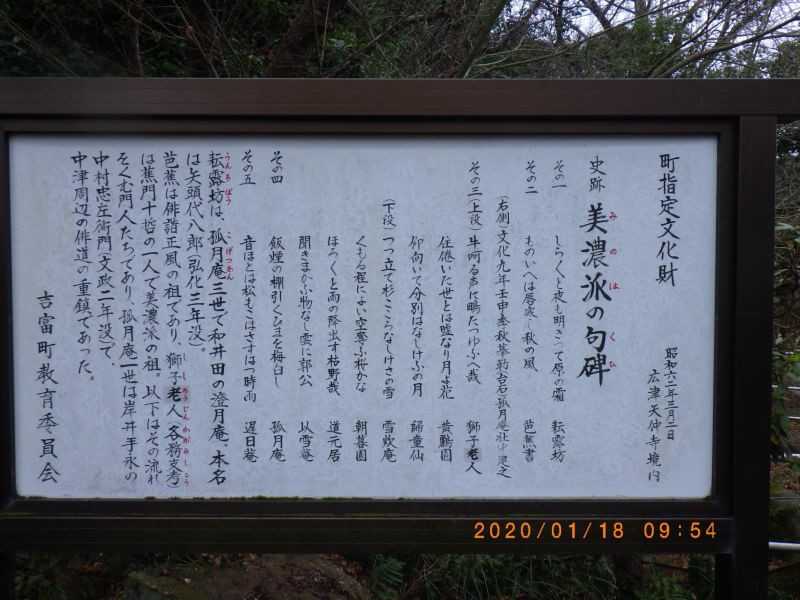 町指定文化財
昭和六二年三月二日
広津天仲寺境内
史跡 美濃派の句碑
みのはくひ
その一 しらくと夜も明きつて原の霜 耘露坊
その二 ものいへは唇寒し秋の風 芭蕉書
(右側)文化九年壬申季秋
その三(上段)牛呵る声に鴫たつゆふへ哉 獅子老人
住倦いた世とは嘘なり月と花 黄鸝園
仰向いて分別はなしけふの月 歸童仙
(下段)つつ立て杉こころなしけさの雪 雪炊庵
くもる程によい空夢ふ桜かな 朝暮園
ほろくと雨の降出す枯野哉 道元居
聞きまかふ物なし雲に郭公 以雪庵
その四 飯煙の棚引くひまを梅白し 孤月庵
その五 音ほとは松もこはさすはつ時雨 遅日庵
耘露坊は、孤月庵三世で和井田の澄月庵。本名
うんろぼう こげつあん
は矢頭代八郎(弘化三年没)。
芭蕉は俳諧正風の祖であり、獅子老人(各務支考)
ししろうじん かがみしこう
は蕉門十哲の一人で美濃派の祖。以下はその流れ
をくむ門人たちであり、孤月庵一世は岸井手永の
中村忠左衛門(文政二年没)で、
中津周辺の俳道の重鎮であった。
吉富町教育委員会
2020/01/18 09:54